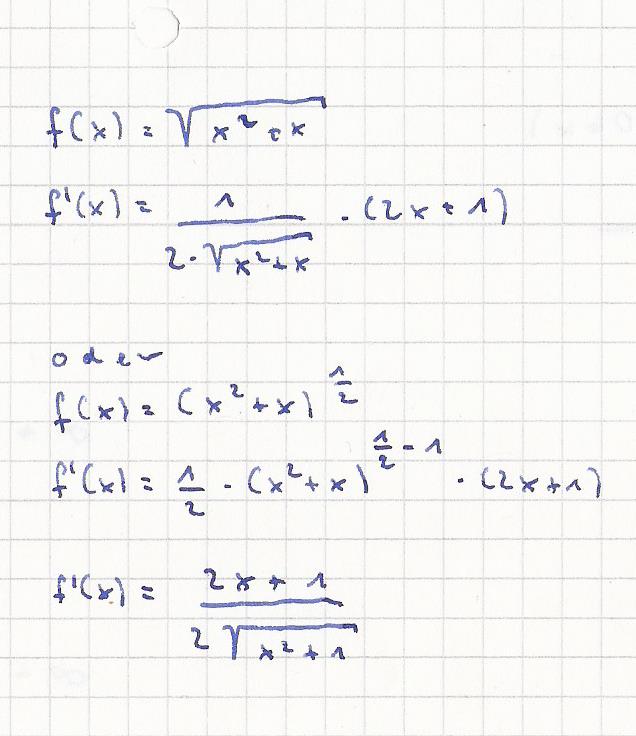 f(x) = √(x² + x)
f'(x) = 1/(2·√(x²+x)) · (2x + 1)
oder
f(x) = (x² + x)^(1/2)
f'(x) = 1/2 · (x² + x)^(1/2 - 1) · (2x + 1)
f'(x) = (2x + 1)/(2√(x² + 1))